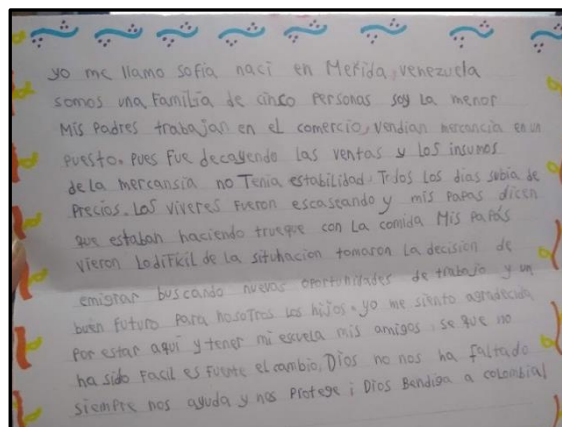 yo me llamo sofia naci en Merida, venezuela
somos una Familia de cinco Personas soy La menor
Mis Padres trabajan en el comercio, vendian mercancia en un
Puesto. Pues Fue decayendo las ventas y los insumos
de la mercansia no Tenia estabilidad. Todos Los dias subia de
Precios. Los viveres Fueron escaseando y mis PaPas dicen
que estaban haciendo trueque con La comida Mis PaPás
vieron Lo diFicil de la situhacion tomaron La decision de
emigrar buscando nuevas oportunidades de trabajo y un
buen Futuro Para nosotros Los hijos. yo me siento agradecida
Por estar aquí y tener mi escuela mis amigos. se que no
ha sido Facil es Fuerte el cambio. Dios no nos ha faltado
siempre nos ayuda y nos Protege ¡ Dios Bendiga a colombia!